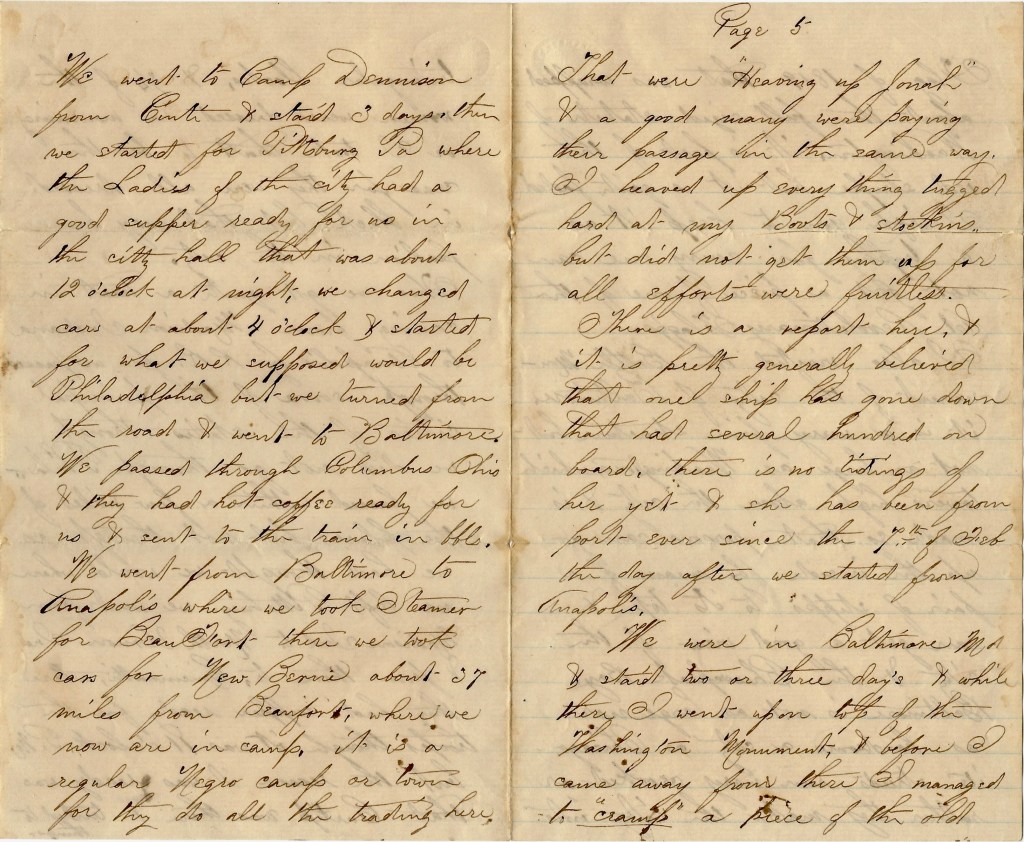 We went to Camp Dennison
from Cinti & staid 3 days. then
we started for Pittsburg Pa where
the Ladies of the city had a
good supper ready for us in
the citty hall that was about
12 oclock at night, we changed
cars at about 4 oclock & started
for what we supposed would be
Philadelphia but we turned from
the road & went to Baltimore.
We passed through Columbus Ohio
& they had hot coffee ready for
us & sent to the train in bbls.
We went from Baltimore to
Anapolis where we took Steamer
for Beaufort there we took
cars for New Berne about 37
miles from Beaufort, where we
now are in camp, it is a
regular Negro camp or town
for they do all the trading here.
Page 5
That were "Heaving up Jonah"
& a good many were paying
their passage in the same way.
I heaved up every thing tugged
hard at my Boots & stockins.
but did not get them up for
all efforts were fruitless.
There is a report here, &
it is pretty generally believed
that one ship has gone down
that had several hundred on
board. there is no tidings of
her yet & she has been from
port ever since the 7th of Feb
the day after we started from
Anapolis.
We were in Baltimore Md
& staid two or three days & while
there I went upon top of the
Washington Monument, & before I
came away from there I managed
to "cramp" a piece of the old